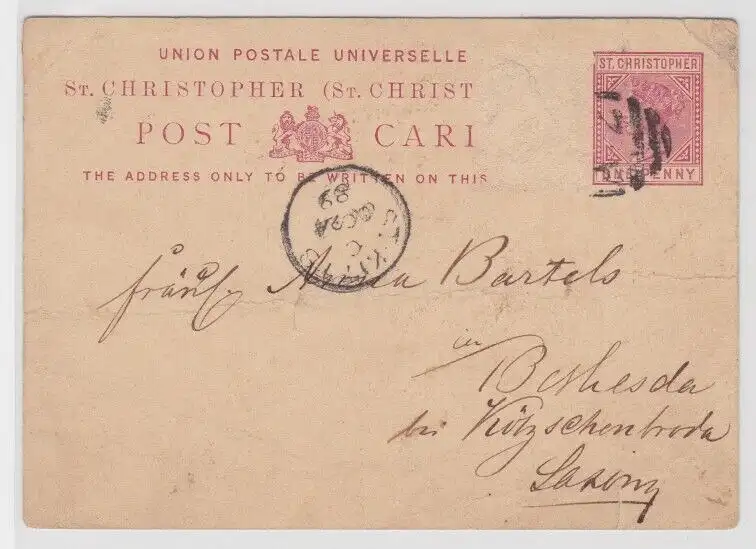 UNION POSTALE UNIVERSELLE
ST. CHRISTOPHER (ST. CHRIST
POST CARI
THE ADDRESS ONLY TO BE WRITTEN ON THIS
ST. CHRISTOPHER
NE PENNY
ST. KITTS
C
OC 24
89
Fräul. Anna Bartels
in
Bethesda
bei Kötzschenbroda
Saxony